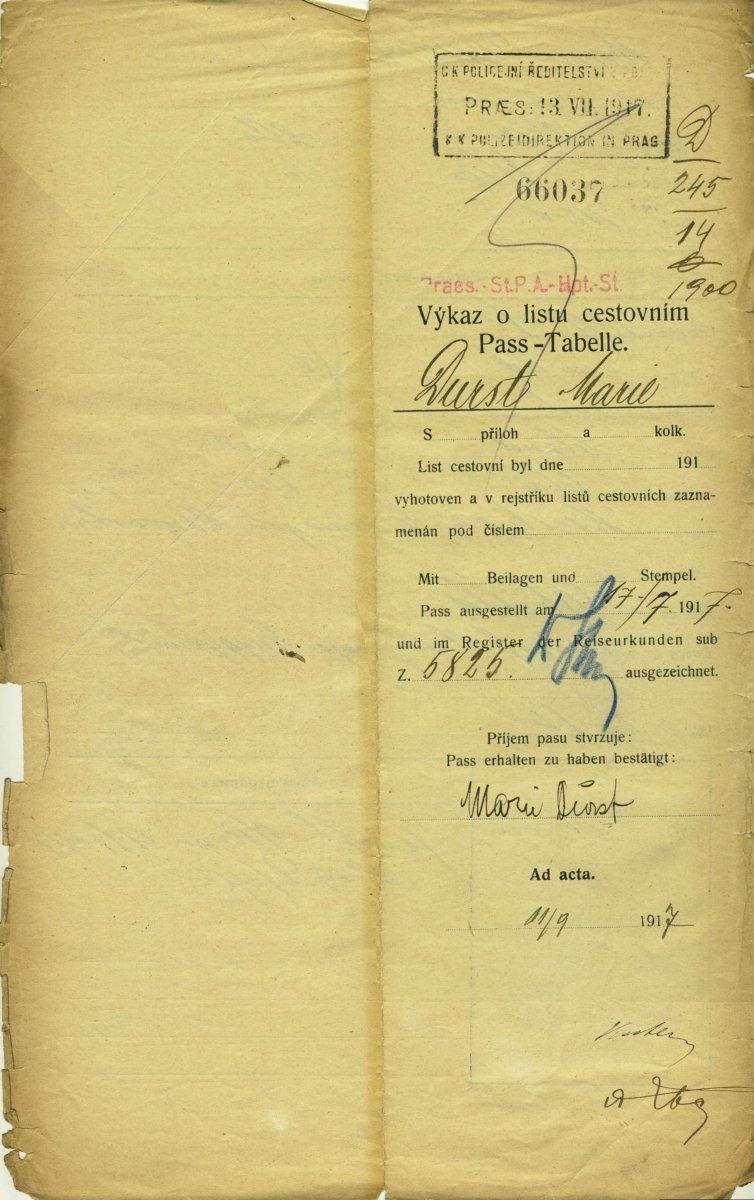 C.K POLICEJNÍ ŘEDITELSTVÍ
PRÆS: 13. VII. 1917.
K K POLIZEIDIREKTION IN PRAG
66037
D
245
14
1900
Praes.-St.P.A.-Hpt.-St.
Výkaz o listu cestovním
Pass-Tabelle.
Durst Marie
S příloh a kolk.
List cestovní byl dne 191
vyhotoven a v rejstříku listů cestovních zazna-
menán pod číslem
Mit Beilagen und Stempel.
Pass ausgestellt am 17./7. 1917.
und im Register der Reiseurkunden sub
Z. 5825. ausgezeichnet.
Příjem pasu stvrzuje:
Pass erhalten zu haben bestätigt:
Marie Dürst
Ad acta.
11/9 1917